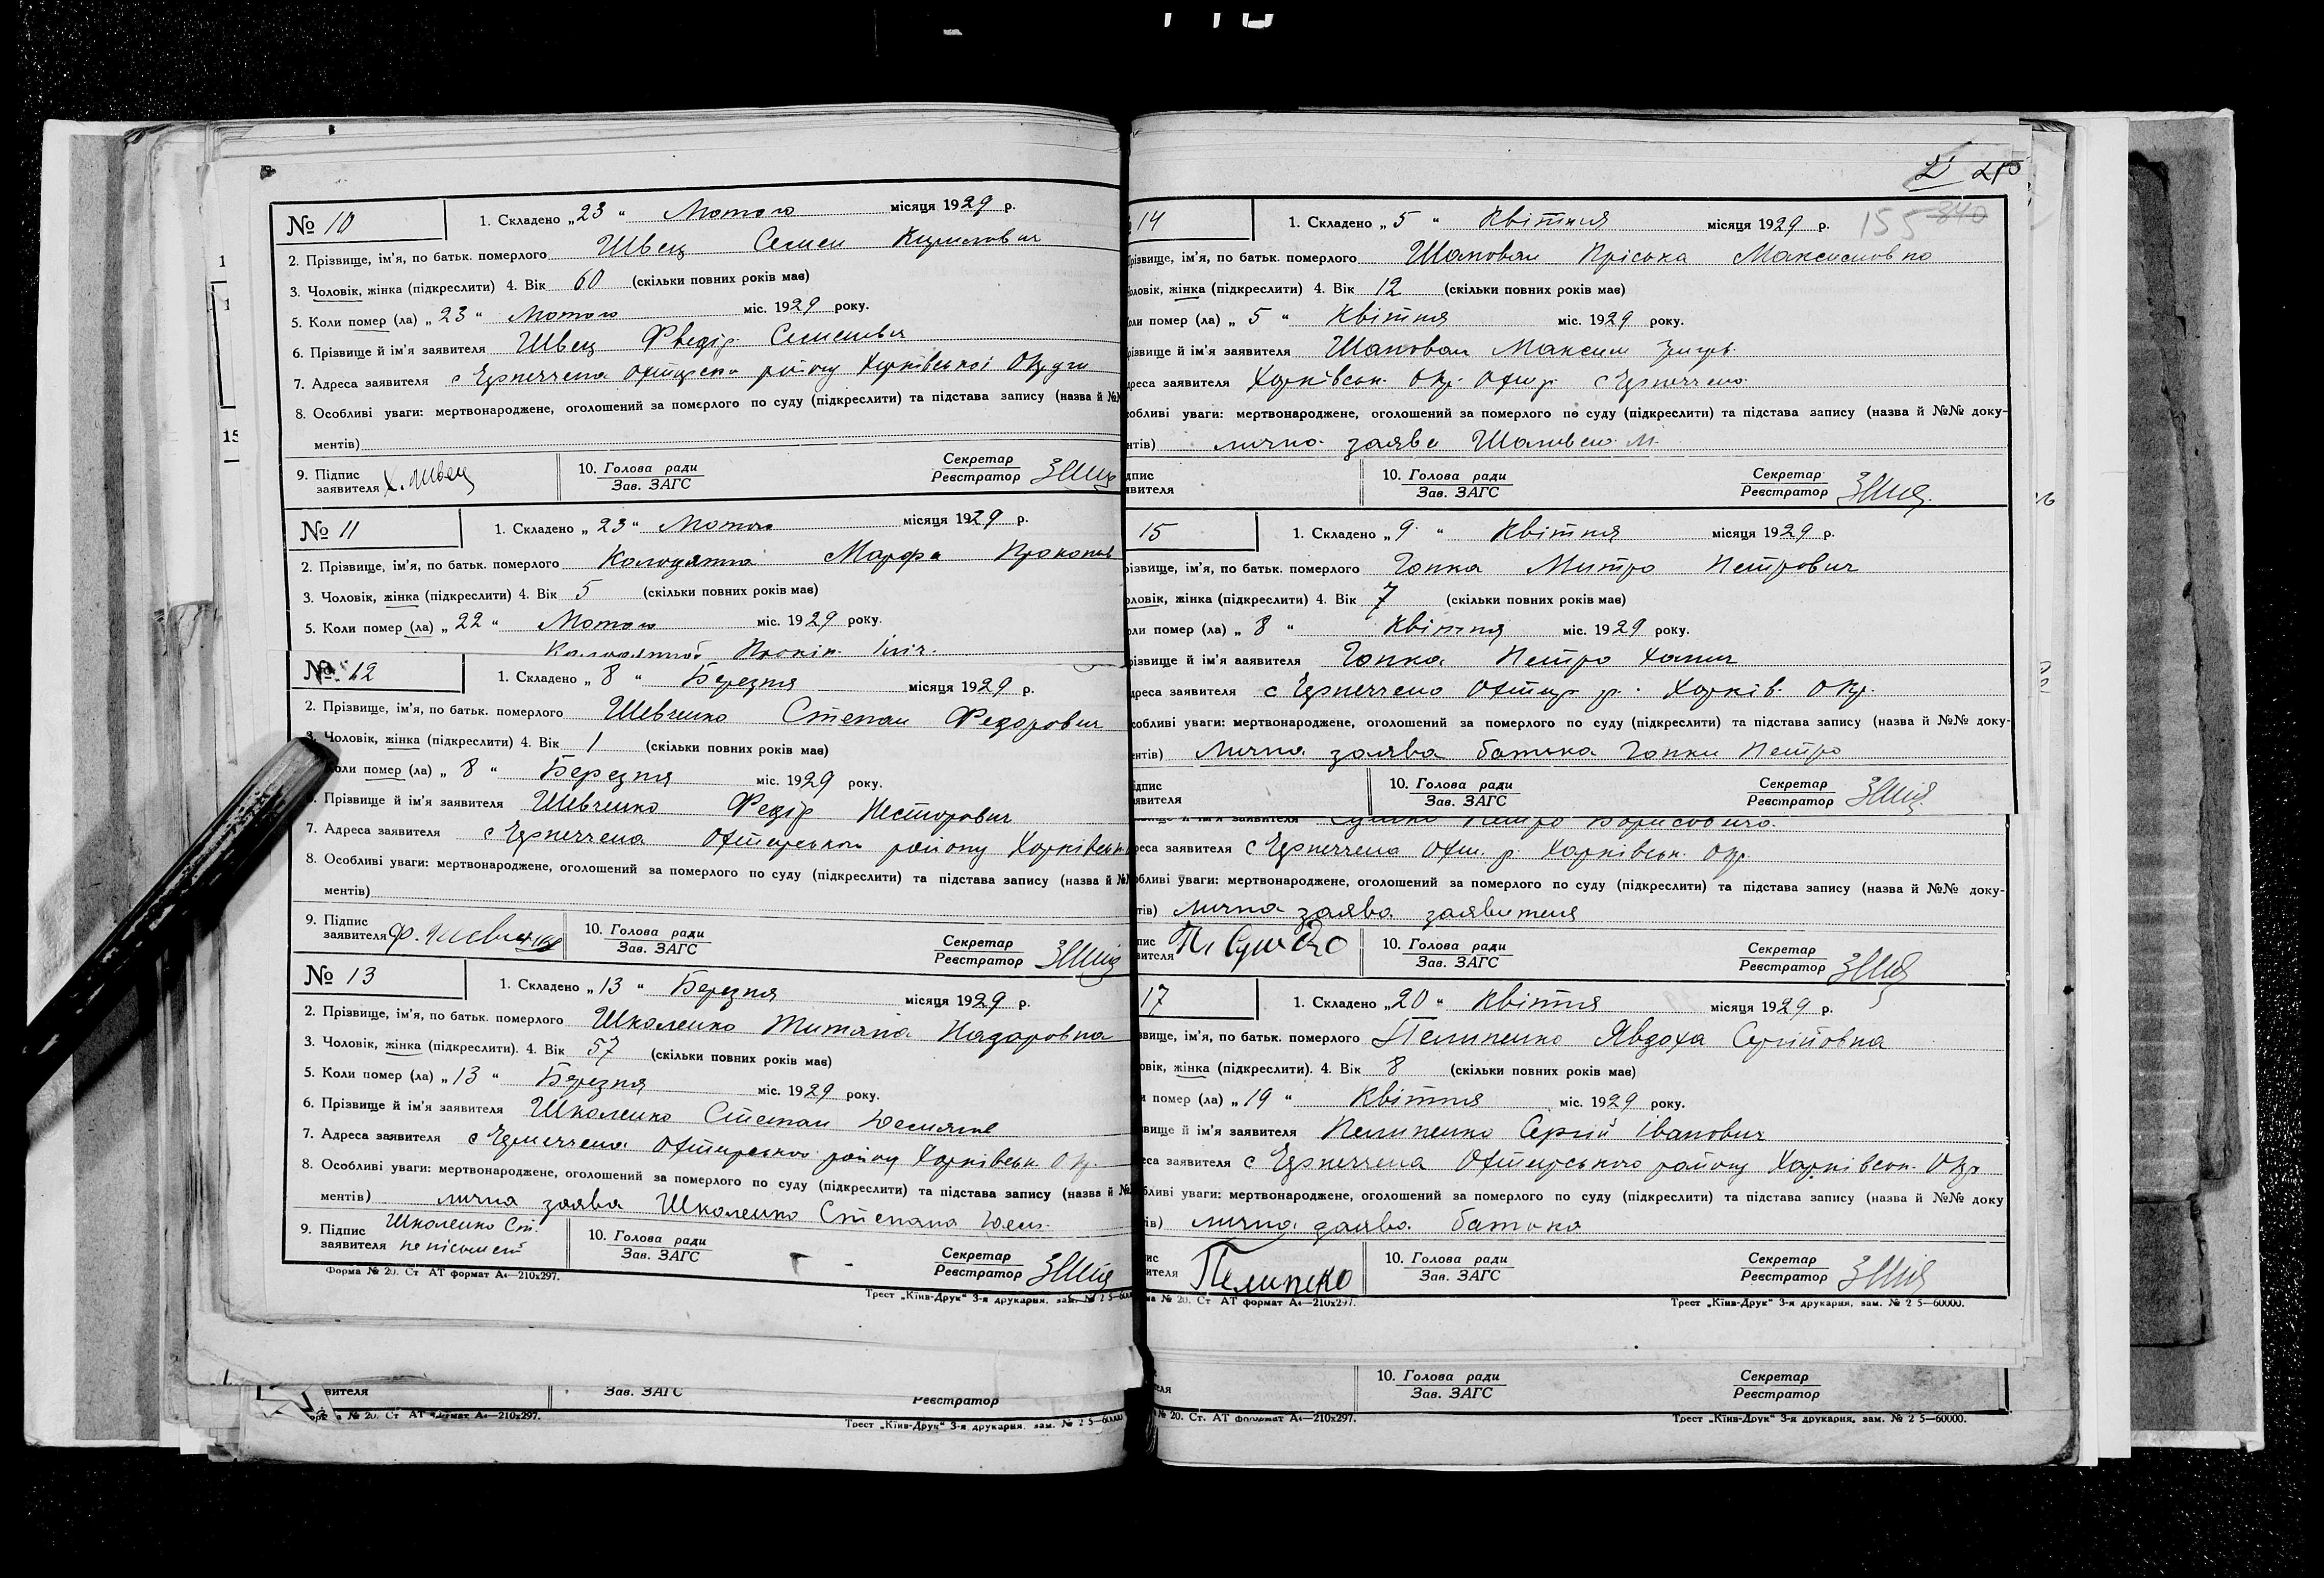 № 10 1. Складено „23“ Лютого місяця 1929 р.
2. Прізвище, ім'я, по батьк. померлого Швец Семен Кирилович
3. Чоловік, жінка (підкреслити) 4. Вік 60 (скільки повних років має)
5. Коли помер (ла) „23“ Лютого міс. 1929 року.
6. Прізвище й ім'я заявителя Швец Федір Семенович
7. Адреса заявителя с району Харківської Округи
8. Особливі уваги: мертвонароджене, оголошений за померлого по суду (підкреслити) та підстава запису (назва й №
ментів)
9. Підпис заявителя Х. Швец 10. Голова ради Зав. ЗАГС Секретар Реєстратор
№ 11 1. Складено „23“ Лютого місяця 1929 р.
2. Прізвище, ім'я, по батьк. померлого Марфа Прокопов
3. Чоловік, жінка (підкреслити) 4. Вік 5 (скільки повних років має)
5. Коли помер (ла) „22“ Лютого міс. 1929 року.
Прокіп
№ 12 1. Складено „8“ Березня місяця 1929 р.
2. Прізвище, ім'я, по батьк. померлого Шевченко Степан Федорович
3. Чоловік, жінка (підкреслити) 4. Вік 1 (скільки повних років має)
Коли помер (ла) „8“ Березня міс. 1929 року.
Прізвище й ім'я заявителя Шевченко Федір Несторович
7. Адреса заявителя с району Харківськ
8. Особливі уваги: мертвонароджене, оголошений за померлого по суду (підкреслити) та підстава запису (назва й №
ментів)
9. Підпис заявителя Ф. Шевченко 10. Голова ради Зав. ЗАГС Секретар Реєстратор
№ 13 1. Складено „13“ Березня місяця 1929 р.
2. Прізвище, ім'я, по батьк. померлого Школенко Назаровна
3. Чоловік, жінка (підкреслити). 4. Вік 57 (скільки повних років має)
5. Коли помер (ла) „13“ Березня міс. 1929 року.
6. Прізвище й ім'я заявителя Школенко Степан
7. Адреса заявителя с району Харківськ. Окр.
8. Особливі уваги: мертвонароджене, оголошений за померлого по суду (підкреслити) та підстава запису (назва й №
ментів) лична заява Школенко Степана
9. Підпис заявителя Школенко Ст. 10. Голова ради Зав. ЗАГС Секретар Реєстратор
Форма № 20. Ст АТ формат А4—210х297.
Трест „Київ-Друк“ 3-я друкарня, зам. № 2 5—600
вителя Зав. ЗАГС Реєстратор
№ 20. Ст АТ формат А4—210х297.
Трест „Київ-Друк“ 3-я друкарня. зам. № 2 5—60000
155 340
14 1. Складено „5“ Квітня місяця 1929 р.
різвище, ім'я, по батьк. померлого Шаповал Пріська Максимовна
оловік, жінка (підкреслити) 4. Вік 12 (скільки повних років має)
оли помер (ла) „5“ Квітня міс. 1929 року.
різвище й ім'я заявителя Шаповал Максим
дреса заявителя Харківськ. Окр. с
собливі уваги: мертвонароджене, оголошений за померлого по суду (підкреслити) та підстава запису (назва й №№ доку-
нтів) лична заява М.
дпис явителя 10. Голова ради Зав. ЗАГС Секретар Реєстратор
15 1. Складено „9“ Квітня місяця 1929 р.
різвище, ім'я, по батьк. померлого Гопка Митро Петрович
оловік, жінка (підкреслити) 4. Вік 7 (скільки повних років має)
оли помер (ла) „8“ Квітня міс. 1929 року.
різвище й ім'я заявителя Гопка Петро
дреса заявителя с р. Харків. Окр.
собливі уваги: мертвонароджене, оголошений за померлого по суду (підкреслити) та підстава запису (назва й №№ доку-
ентів) Лична заява батька Гопки Петро
ідпис явителя 10. Голова ради Зав. ЗАГС Секретар Реєстратор
Петро Борисович
реса заявителя с р. Харківськ. Окр.
обливі уваги: мертвонароджене, оголошений за померлого по суду (підкреслити) та підстава запису (назва й №№ доку-
тів) лична заява заявителя
пис вителя 10. Голова ради Зав. ЗАГС Секретар Реєстратор
17 1. Складено „20“ Квітня місяця 1929 р.
звище, ім'я, по батьк. померлого Пелипенко Явдоха Сергійовна
овік, жінка (підкреслити). 4. Вік 8 (скільки повних років має)
и помер (ла) „19“ Квітня міс. 1929 року.
звище й ім'я заявителя Пелипенко Сергій Іванович
еса заявителя с району Харківськ. Окр
бливі уваги: мертвонароджене, оголошений за померлого по суду (підкреслити) та підстава запису (назва й №№ доку
ів) лична заява батька
ис ителя Пелипенко 10. Голова ради Зав. ЗАГС Секретар Реєстратор
ма № 20. Ст АТ формат А4—210х297.
Трест „Київ-Друк“ 3-я друкарня, зам. № 2 5—60000.
10. Голова ради Зав. ЗАГС Секретар Реєстратор
№ 20. Ст. АТ формат А4—210х297.
Трест „Київ-Друк“ 3-я друкарня, зам. № 2 5—60000.